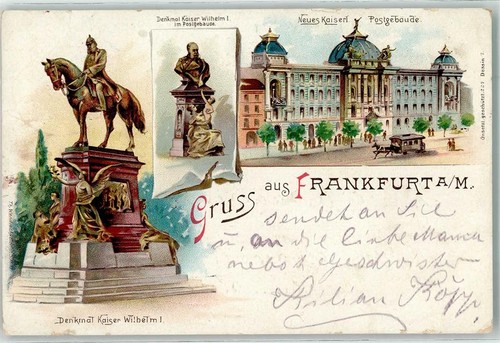 Denkmal Kaiser Wilhelm I.
im Postgebäude.
Neues Kaiserl. Postgebäude.
Gruss aus FRANKFURT A/M.
sendet an Sie
u. an die liebe Mama
nebst Geschwister
Kilian Köpp
Denkmal Kaiser Wilhelm I.